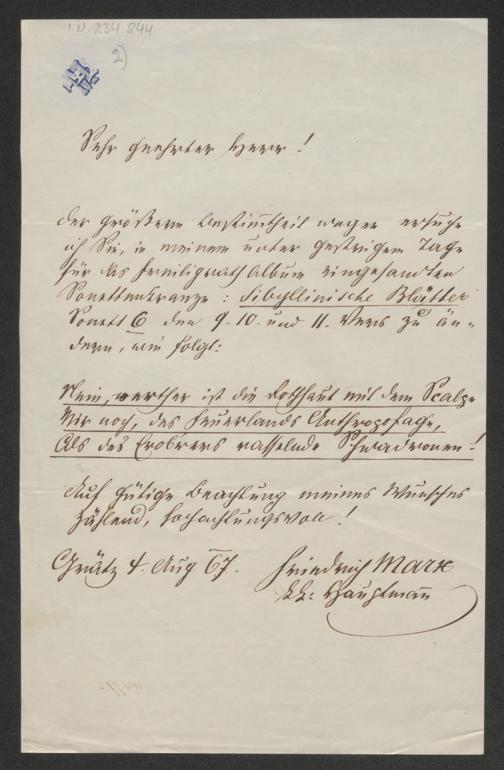 I.N. 234.844
2)
Sehr geehrter Herr!
Der größern Bestimtheit wegen ersuche
ich Sie, in meinem unter gestrigem Tage
für das Freiligrath Album eingesandten
Sonettenkranze: Sibyllinische Blätter
Sonett 6 den 9. 10. und 11. Vers zu än-
dern, wie folgt:
Nein, werther ist die Rothhaut mit dem Scalpe
Mir noch, des Feuerlands Anthropofage,
Als des Erob'rers rasselnde Schwadronen!
Auf gütige Beachtung meines Wunsches
zählend, hochachtungsvoll!
Grätz 4. Aug 67. Friedrich Marx
kk: Hauptmañ